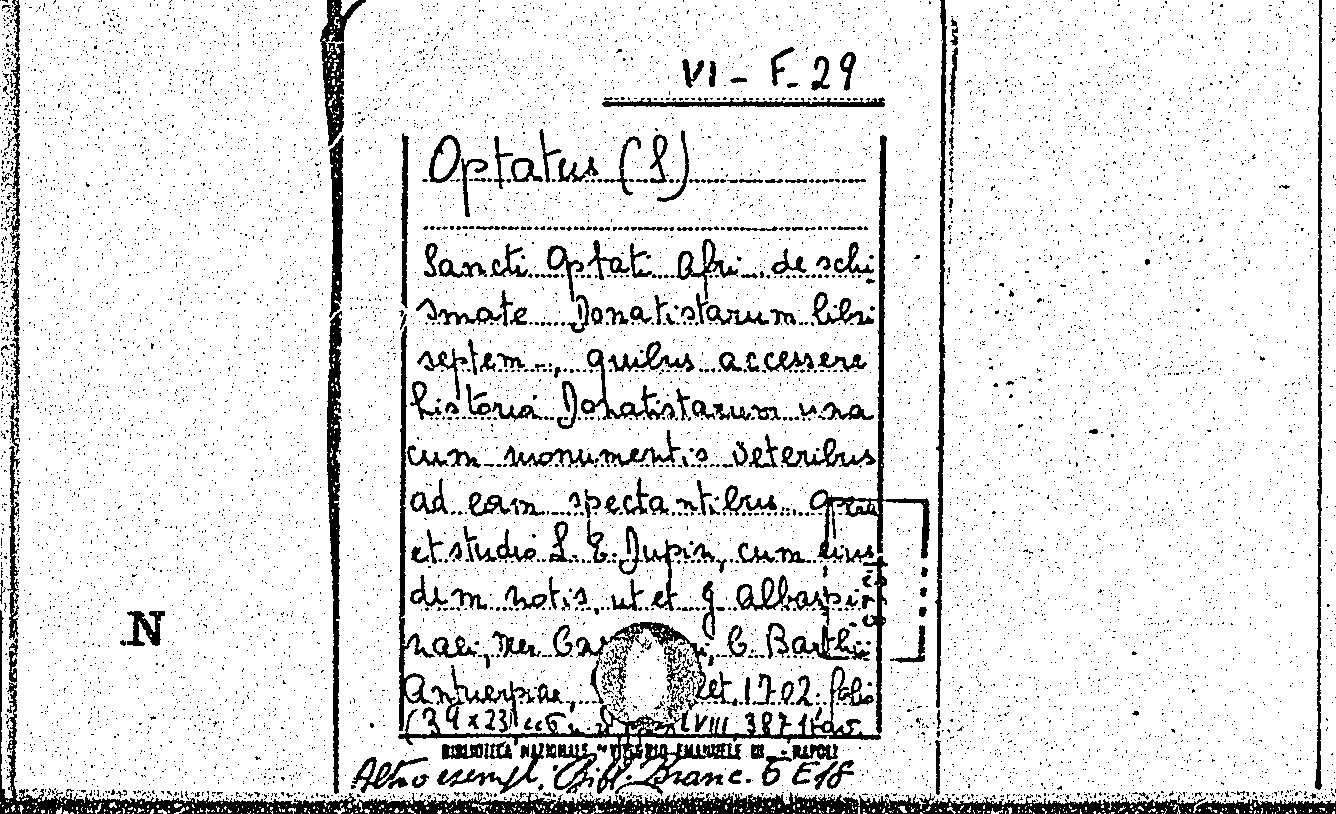 VI - F. 29
Optatus (S)
Sancti Optati Afri de schi
smate Donatistarum libri
septem..., quibus accessere
historia Donatistarum una
cum monumentis veteribus
ad eam spectantibus. Opera
et studio L. E. Dupin, cum eius
dem notis, ut et G. Albaspi
naei, Mer. C. Barthii
Antuerpiae, 1702. folio
(39 x 23) LVIII, 387, 1 tav.
BIBLIOTECA NAZIONALE "VITTORIO EMANUELE III" - NAPOLI
Altro esempl.: Bibl. Branc. 6 E 18
N